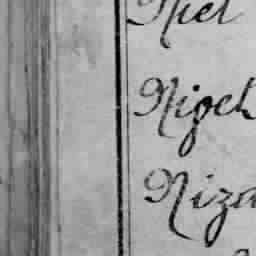 Niel
Nigel
Niza